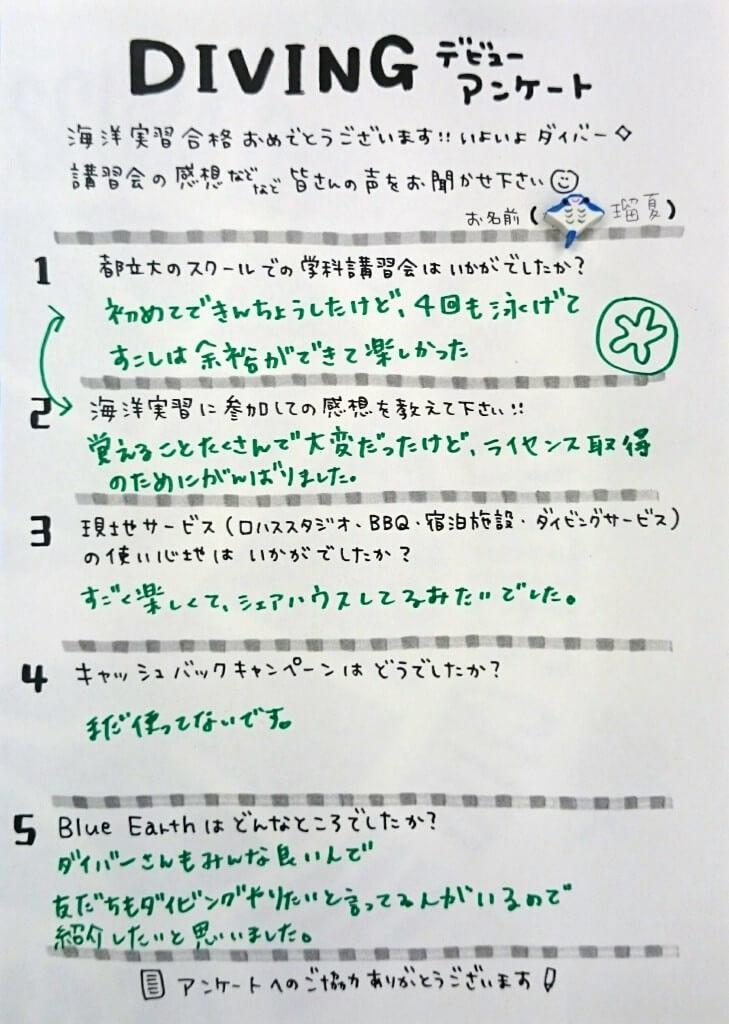 DIVING デビュー
アンケート
海洋実習合格おめでとうございます!! いよいよダイバー◇
講習会の感想などなど 皆さんの声をお聞かせ下さい
お名前 ( 瑠夏 )
1 都立大のスクールでの学科講習会はいかがでしたか?
初めてできんちょうしたけど、4回も泳げて
すこしは余裕ができて楽しかった
2 海洋実習に参加しての感想を教えて下さい!!
覚えることたくさんで大変だったけど、ライセンス取得
のためにがんばりました。
3 現地サービス(ロハススタジオ、BBQ・宿泊施設・ダイビングサービス)
の使い心地はいかがでしたか?
すごく楽しくて、シェアハウスしてるみたいでした。
4 キャッシュバックキャンペーンはどうでしたか?
まだ使ってないです。
5 Blue Earthはどんなところでしたか?
ダイバーさんもみんな良い人で
友だちもダイビングやりたいと言ってる人がいるので
紹介したいと思いました。
アンケートへのご協力ありがとうございます